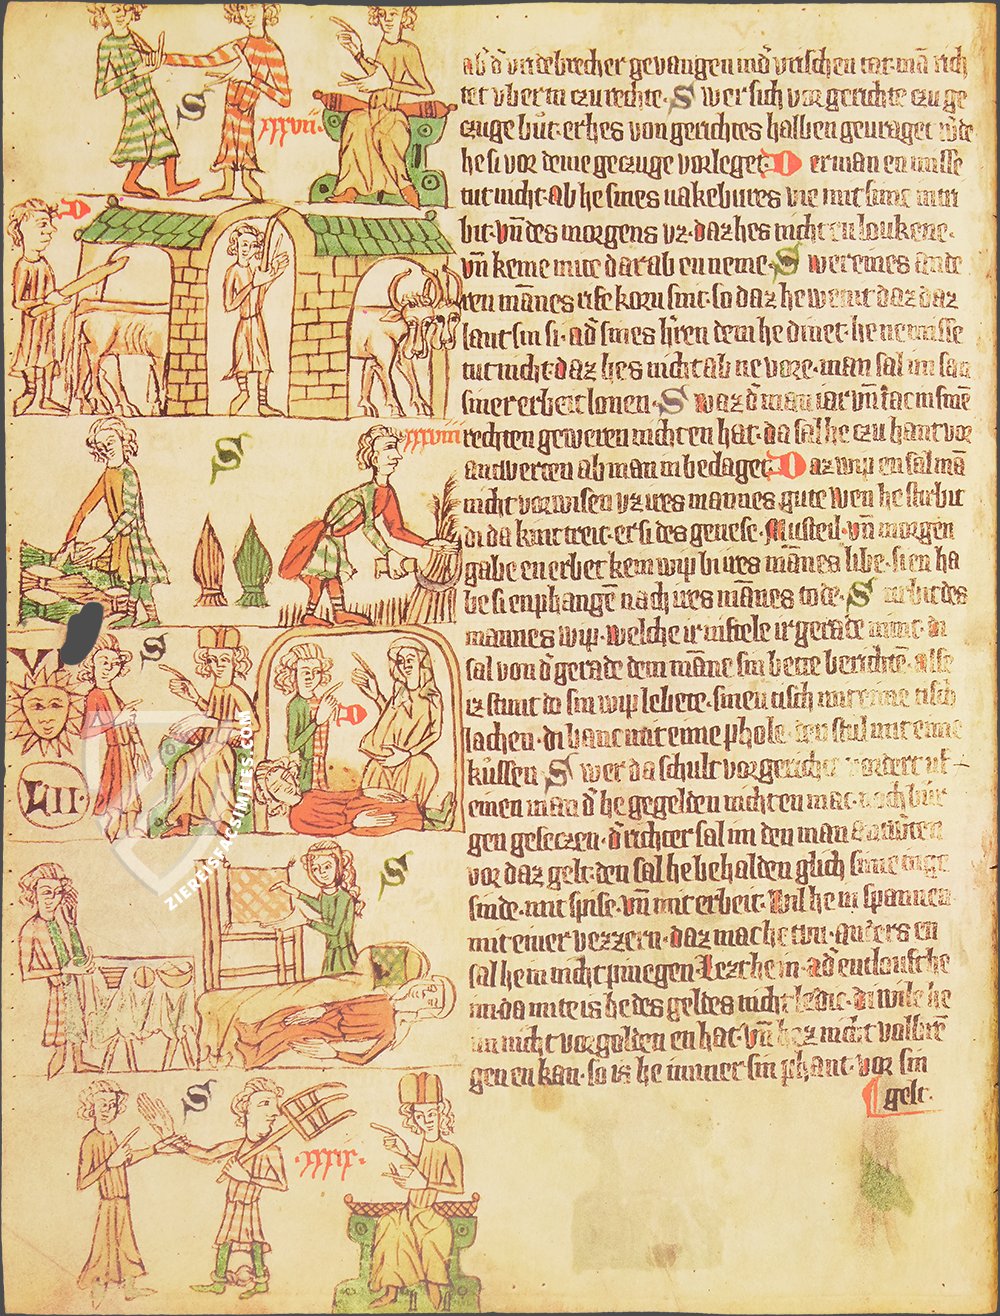 ab d' vridebrecher gevangen und vrischen tat. mā rich
tet vber in czu rechte. S wer sich vor gerichte czu ge
czuge but. er hes von gerichtes halben gevraget w'de
he si vor deme geczuge vorleget. D er man en misse
tut nicht. ab he sines nakebures vie mit sime intri
bit. vn̄ des morgens vz. daz hes nicht en loukene.
vn̄ keine mite dar ab en neme. S wer eines ande
ren mānes rife korn snit. so daz he wenit daz daz
lant sin si. ad' sines h'ren dem he dinet. he ne misse
tut nicht. daz hes nicht ab ne vore. man sal im san
siner erbeit lonen. S waz d' man
rechten geweren nicht en hat. da sal he czu hant vor
antwerten ab man in bedaget. D az wip en sal mā
nicht vorwisen vz ires mannes gute wen he stirbit
di da kint treit. er si des genese. Musteil. vn̄ morgen
gabe en erbet kein wip bi ires mānes libe. si en ha
be si enphangē nach ires mānes tode. S tirbit des
mannes wip. welche ir niftele ir gerade nimt. di
sal von d' gerade dem māne sin bette berichtē. alse
iz stunt do sin wip lebete. sinen tisch mit eime tisch
lachen. di banc mit eime phole. den stul mit eime
kussen. S wer da schult vor gerichte vordert uf
einen man d' he gegelden nicht en mac. noch bur
gen geseczen. d' richter sal im den man antw'ten
vor daz gelt. den sal he behalden glich sime inge
sinde. mit spise. vn̄ mit erbeit. Wil he in spannen
mit einer vezzern. daz mac he tun. anders en
sal he in nicht pinegen. Lezt he in. ad' entlouft he
im. da mite is he des geldes nicht ledic. di wile he
im nicht vorgolden en hat. vn̄ hez nicht volbrē
gen en kan. so is he immer sin phant. vor sin
gelt.
S
xxxvii.
D
S
xxxviii
VI
S
LII.
D
S
S
.xxxix.
ZIERENFACSIMILES.COM